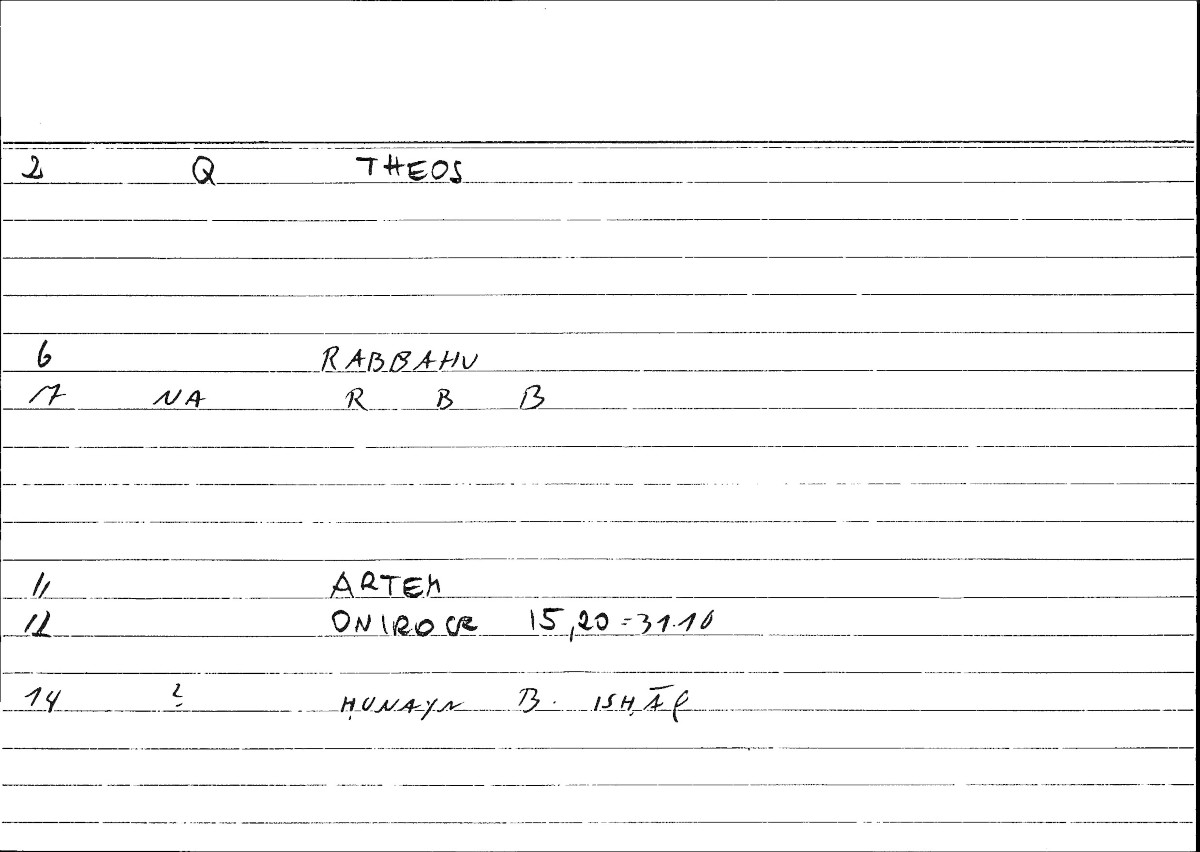 2 Q THEOS
6 RABBAHU
17 NA R B B
11 ARTEM
12 ONIROCR 15,20=31.10
14 ? ḤUNAYN B. ISḤĀQ